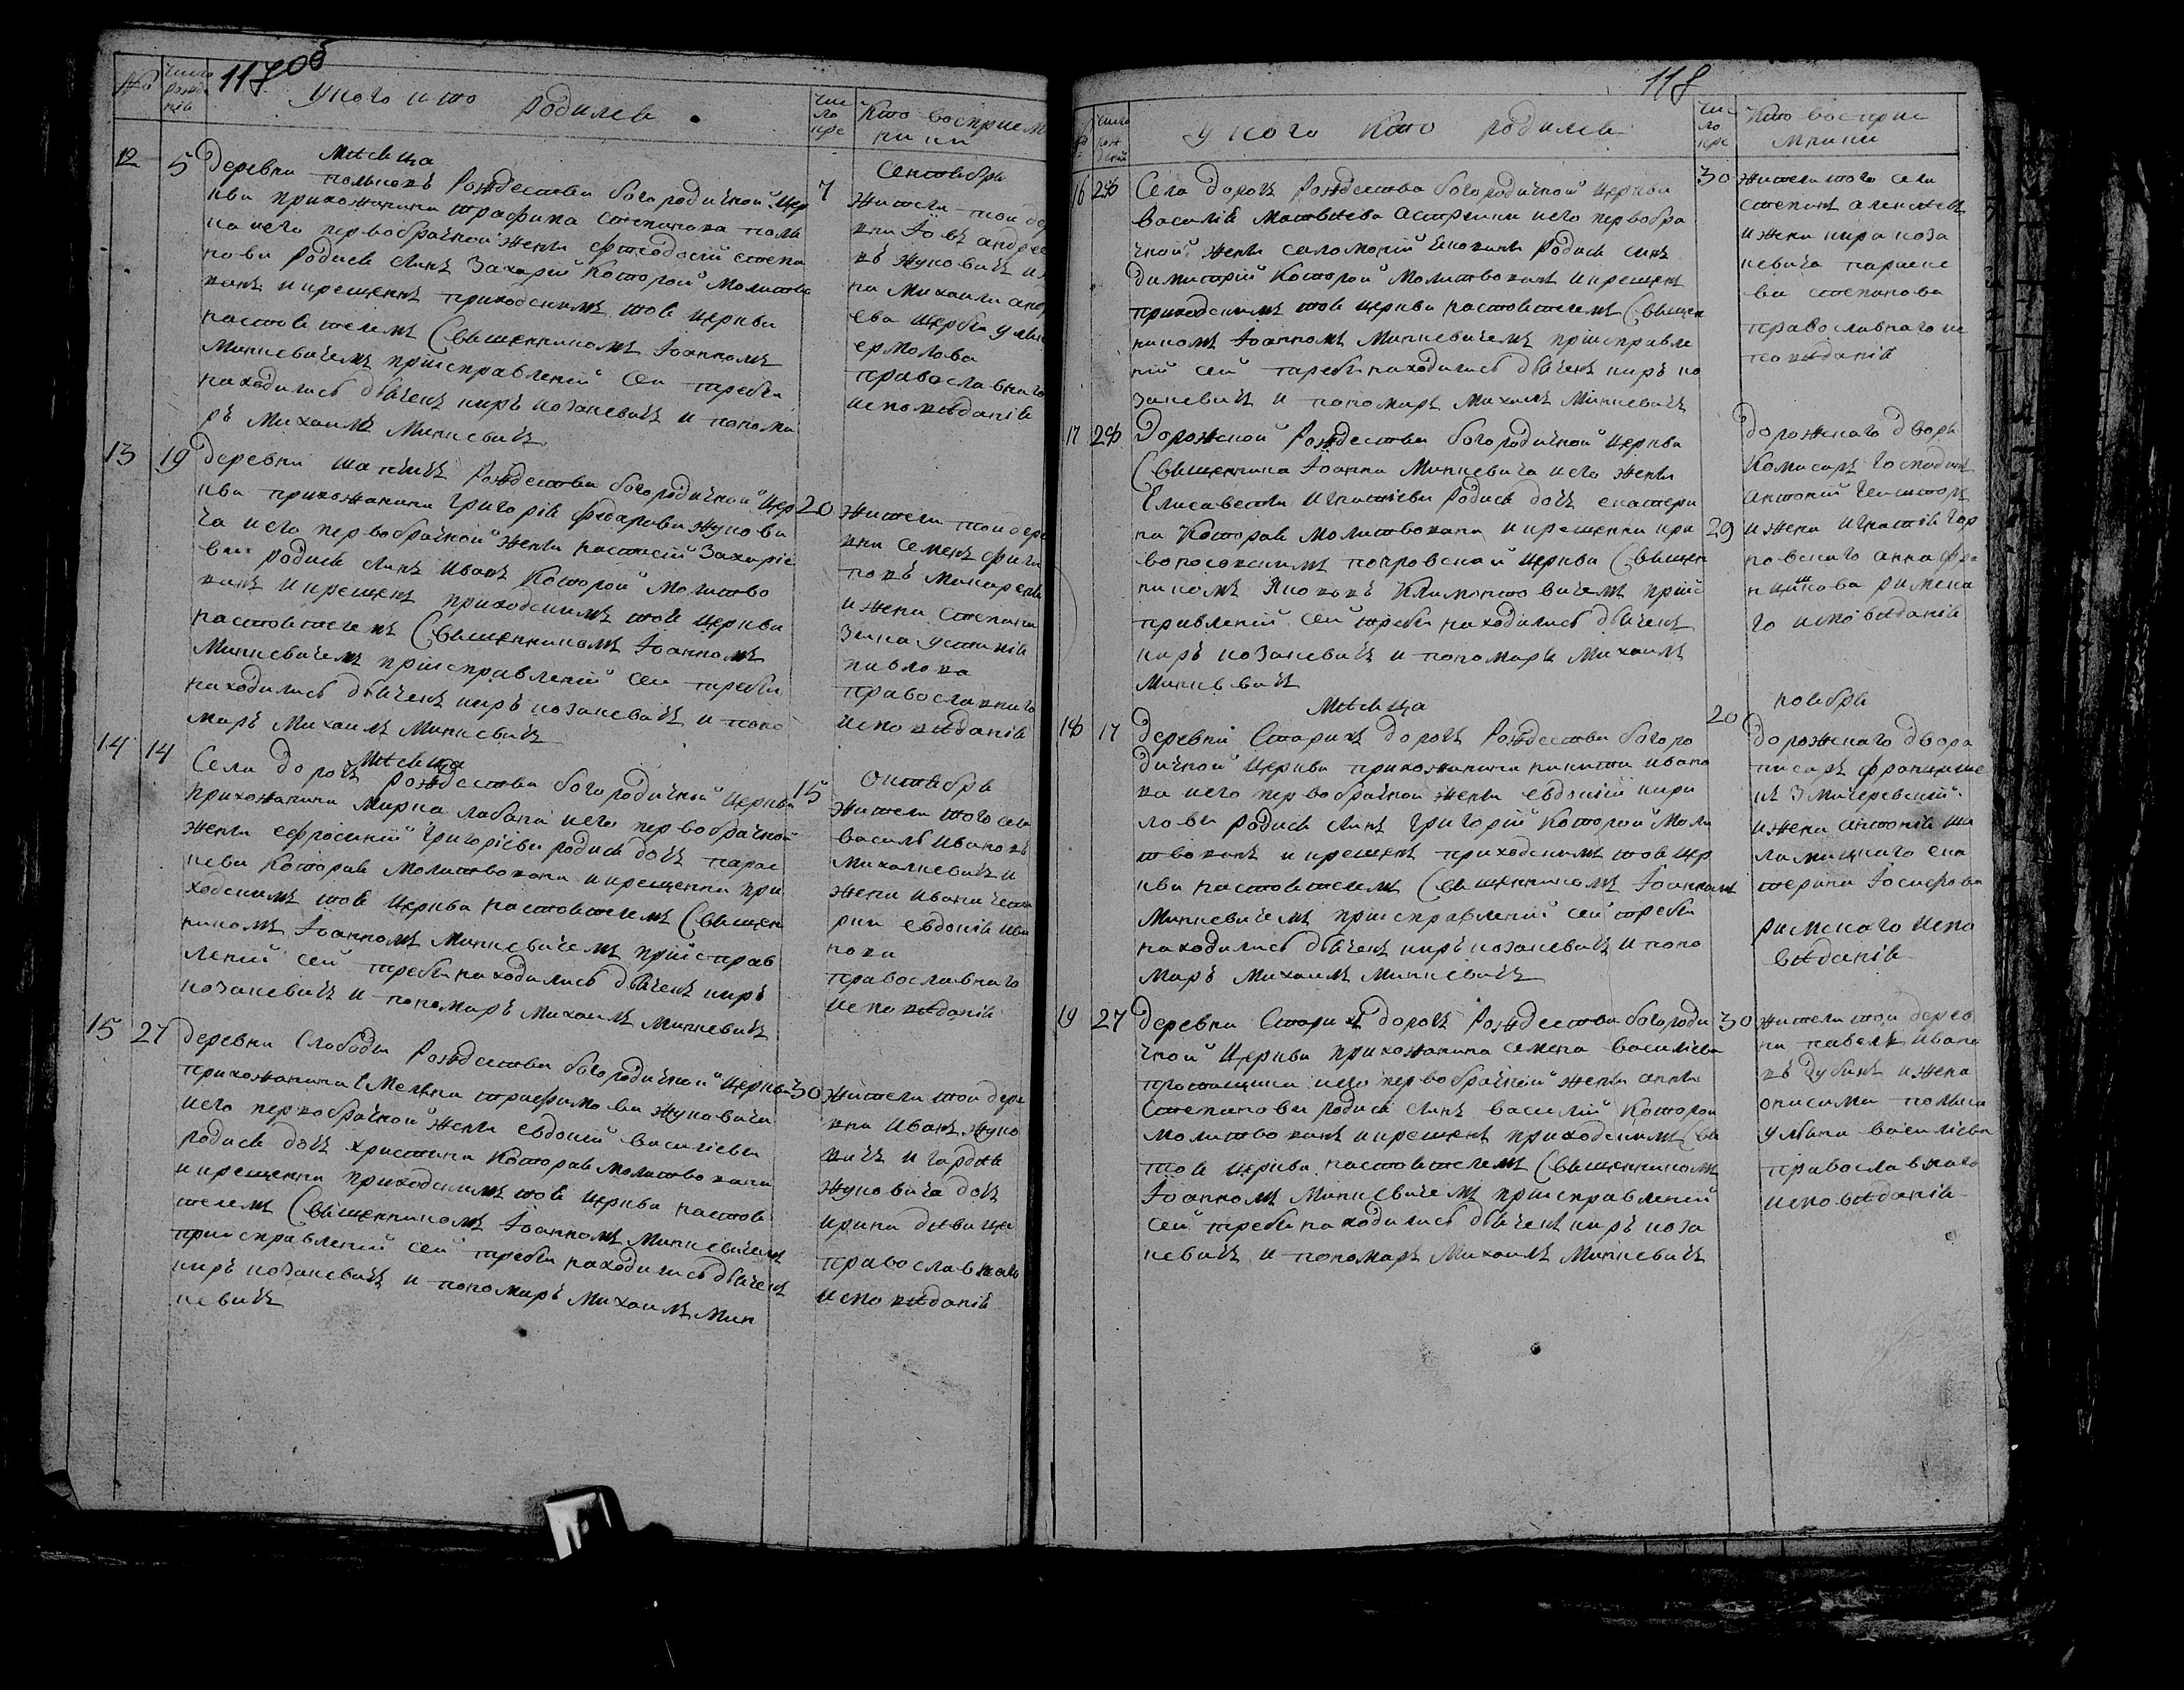 117об
№
число рожденія
У кого кто родился
число кре
Кто восприемники
Мѣсяца Сентября
12 5 Деревни Рождества богородичной цер
кви прихожанина Трафима Степанова
на и его первобрачной жены Степа
новы родися сынъ Захарій которой молитво
ванъ и крещенъ приходскимъ тоя церкви
настоятелемъ Священникомъ Іоанномъ
Минкевичемъ при исправленіи сей требы
находились дьячекъ киръ козакевичъ и понома
ръ Михаилъ Минкевичъ
7 жители той де
вни Іовъ андрее
въ жуковичъ и
на Михаила
ева щербы
ермолова
православнаго
исповѣданія
13 19 Деревни Рождества богородичной цер
кви прихожанина григорія жукови
ча и его первобрачной жены настасіи Захаріе
вы родися сынъ Иванъ которой молитво
ванъ и крещенъ приходскимъ тоя церкви
настоятелемъ Священникомъ Іоанномъ
Минкевичемъ при исправленіи сеи требы
находились дьячекъ киръ козакевичъ и поно
маръ Михаилъ Минкевичъ
20 жители той дере
вни Семенъ
Макареня
и жена степана
Зыка устинія
павлова
православнаго
исповѣданія
Мѣсяца Октября
14 14 Села дорогъ Рождества богородичной церкви
прихожанина Марка лабана и его первобрачной
жены ефросиніи григоріевы родися дочь парас
кева которая молитвована и крещенна при
ходскимъ тоя церкви настоятелемъ Священ
никомъ Іоанномъ Минкевичемъ при исправ
леніи сей требы находились дьячекъ киръ
козакевичъ и пономаръ михаилъ минкевичъ
15 жители того села
василь Ивановъ
Михалкевичъ и
жена Ивана
евдокія Ива
нова
православнаго
исповѣданія
15 27 Деревни Слободы Рождества богородичной церкви
прихожанина трафимовы жуковича
и его первобрачной жены евдокіи василіевы
родися дочь христина которая молитвована
и крещенна приходскимъ тоя церкви настоя
телемъ Священникомъ Іоанномъ Минкевичемъ
при исправленіи сей требы находились дьячекъ
киръ козакевичъ и пономаръ михаилъ мин
кевичъ
30 жители той дере
вни Иванъ жуко
вичъ и гардѣя
жуковича дочь
ирина дѣвица
православнаго
исповѣданія
118
№
число рожденій
У кого кто родился
число кре
Кто восприемники
16 28 Села дорогъ Рождества богородичной церкви
Василія Матвѣева и его первобра
чной жены саломоніи родися сынъ
димитрій которой молитвованъ и крещенъ
приходскимъ тоя церкви настоятелемъ Священ
никомъ Іоанномъ Минкевичемъ при исправле
ніи сей требы находились дьячекъ киръ ко
закевичъ и пономаръ Михаилъ Минкевичъ
30 жители того села
степанъ
и жена кира коза
кевича параске
ва степанова
православнаго ис
повѣданія
17 28 Дорожской Рождества богородичной церкви
Священника Іоанна Минкевича и его жены
Елисаветы Игнатіевы родися дочь екатери
на которая молитвована и крещенна кри
воносовскимъ покровской церкви Священ
никомъ Яковомъ Климонтовичемъ при ис
правленіи сей требы находились дьячекъ
киръ козакевичъ и пономаръ Михаилъ
Минкевичъ
29 Дорожскаго двора
Комисаръ господинъ
антоній
и жена игнатія гор
новскаго анна
римска
го исповѣданія
Мѣсяца ноября
18 17 Деревни Старихъ дорогъ Рождества богоро
дичной церкви прихожанина никиты ивано
ва и его первобрачной жены евдокіи кири
ловы родися сынъ григорій которой моли
твованъ и крещенъ приходскимъ тоя цер
кви настоятелемъ Священникомъ Іоанномъ
Минкевичемъ при исправленіи сей требы
находились дьячекъ киръ козакевичъ и поно
маръ михаилъ Минкевичъ
20 Дорожскаго двора
писаръ францише
къ Змичеревскій
и жена антонія
ека
терина Іосифова
римскаго испо
вѣданія
19 27 Деревни Старихъ дорогъ Рождества богороди
чной церкви прихожанина семена василіева
и его первобрачной жены анны
Степановы родися сынъ василій которой
молитвованъ и крещенъ приходскимъ
тоя церкви настоятелемъ Священникомъ
Іоанномъ Минкевичемъ при исправленіи
сей требы находились дьячекъ киръ коза
кевичъ и пономаръ Михаилъ Минкевичъ
30 жители той дерев
ни павелъ ивано
въ Дубикъ и жена
онисима
ульяна василіева
православнаго
исповѣданія